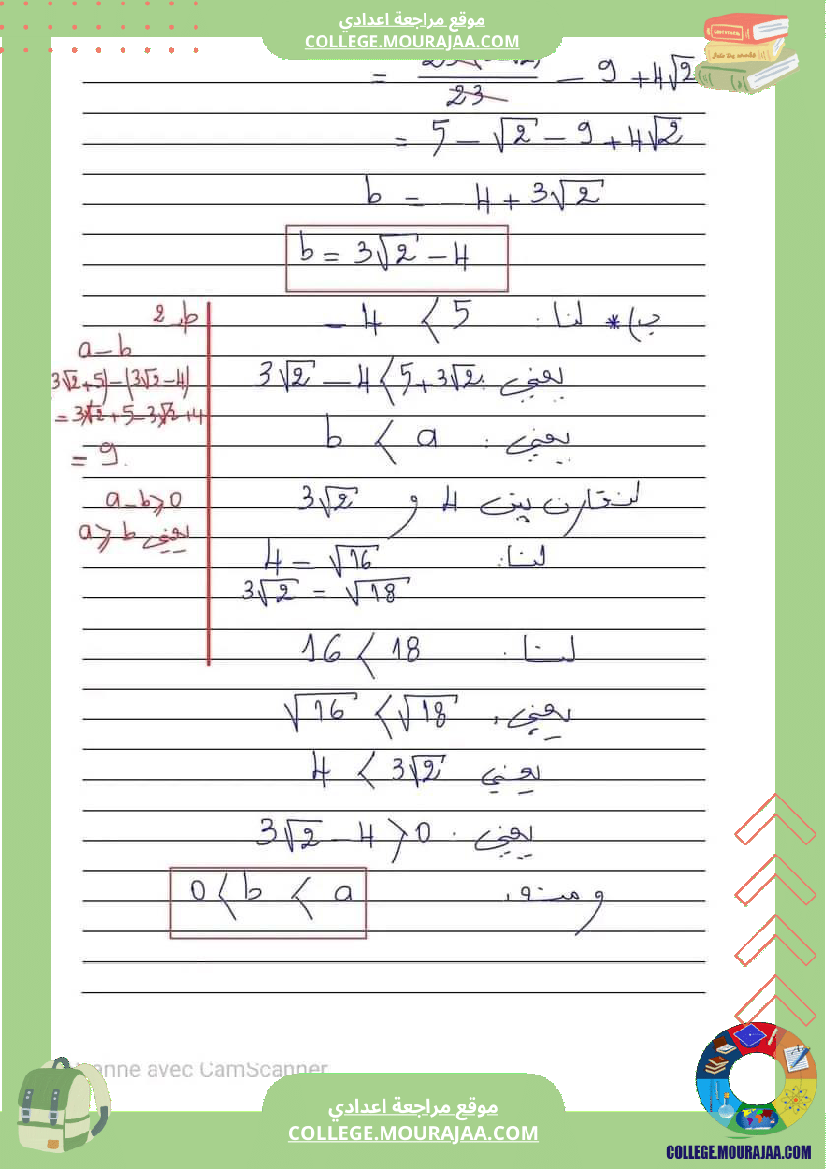 موقع مراجعة اعدادي
COLLEGE.MOURAJAA.COM
= /23 − 9 + 4√2
= 5 − √2 − 9 + 4√2
b = − 4 + 3√2
b = 3√2 − 4
ب) * لنا : − 4 < 5
يعني : 3√2 − 4 < 5 + 3√2
يعني : b < a
لنقارن بين 4 و 3√2
لنا : 4 = √16
3√2 = √18
لنا : 16 < 18
يعني : √16 < √18
يعني 4 < 3√2
يعني : 3√2 − 4 > 0
ومنه : 0 < b < a
a − b
(3√2 + 5) − (3√2 − 4)
= 3√2 + 5 − 3√2 + 4
= 9
a − b ⩾ 0
يعني a ⩾ b
anne avec CamScanner
موقع مراجعة اعدادي
COLLEGE.MOURAJAA.COM
COLLEGE.MOURAJAA.COM